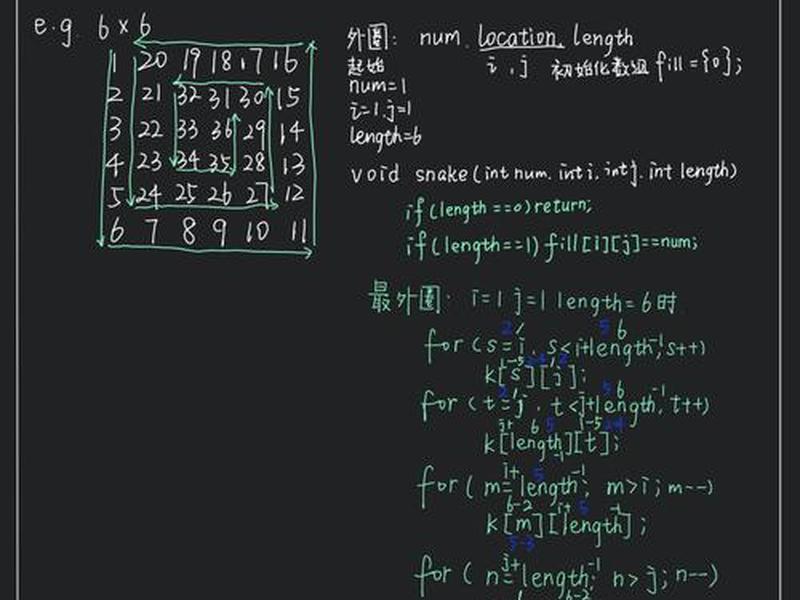 e.g. 6×6
1 20 19 18 17 16
2 21 32 31 30 15
3 22 33 36 29 14
4 23 34 35 28 13
5 24 25 26 27 12
6 7 8 9 10 11
外圈: num. location. length
i , j 初始化数组 fill={0};
起始
num=1
i=1.j=1
length=6
void snake(int num. int i. int j. int length)
if(length==0)return;
if(length==1) fill[i][j]==num;
最外圈: i=1 j=1 length=6时
for (s=i, s<i+length-1;s++)
k[s][j];
for (t=j, t<j+length-1, t++)
k[i+length-1][t];
for( m=i+length-1; m>i;m--)
k[m][j+length-1];
for( n=j+length-1; n>j;n--)